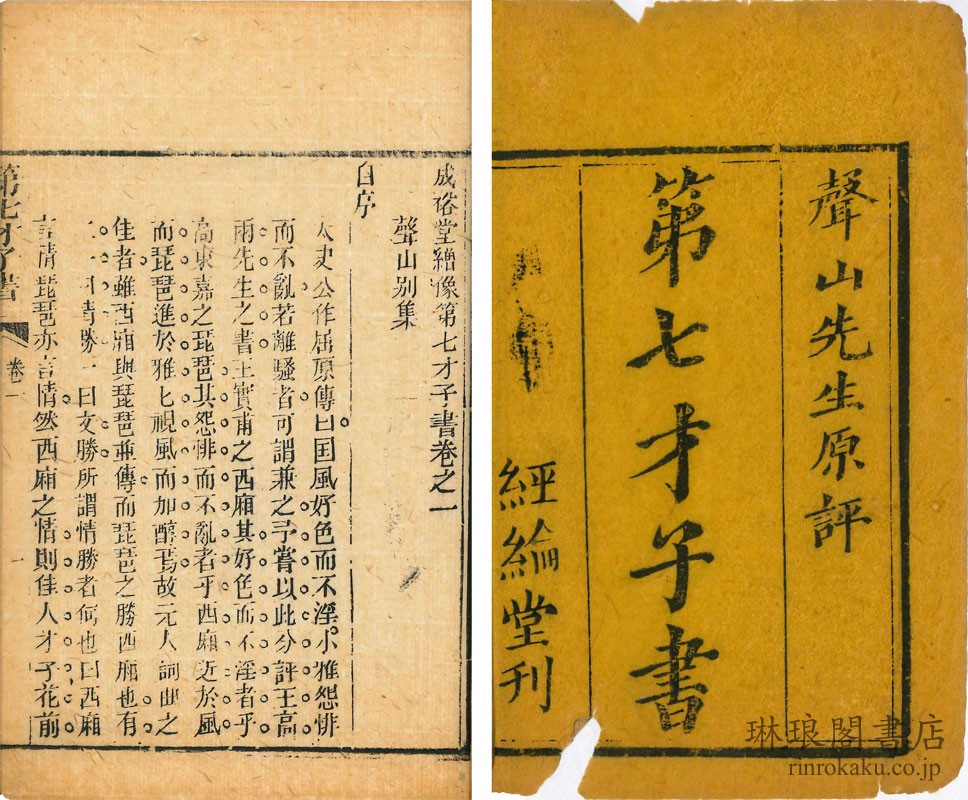 聲山先生原評
第七才子書
經綸堂刊
成裕堂繪像第七才子書卷之一
聲山别集
自序
太史公作屈原傳曰国風好色而不淫小雅怨悱
而不亂若離騷者可謂兼之予嘗以此分評王高
兩先生之書王實甫之西廂其好色而不淫者乎
高東嘉之琵琶其怨悱而不亂者乎西廂近於風
而琵琶進於雅匕視風而加醇焉故元人詞曲之
佳者雖西廂與琵琶並傳而琵琶之勝西廂也有
二一曰情勝一曰文勝所謂情勝者何也曰西廂
言情琵琶亦言情然西廂之情則佳人才子花前
第七才子書 卷一 一
琳琅閣書店
rinrokaku.co.jp